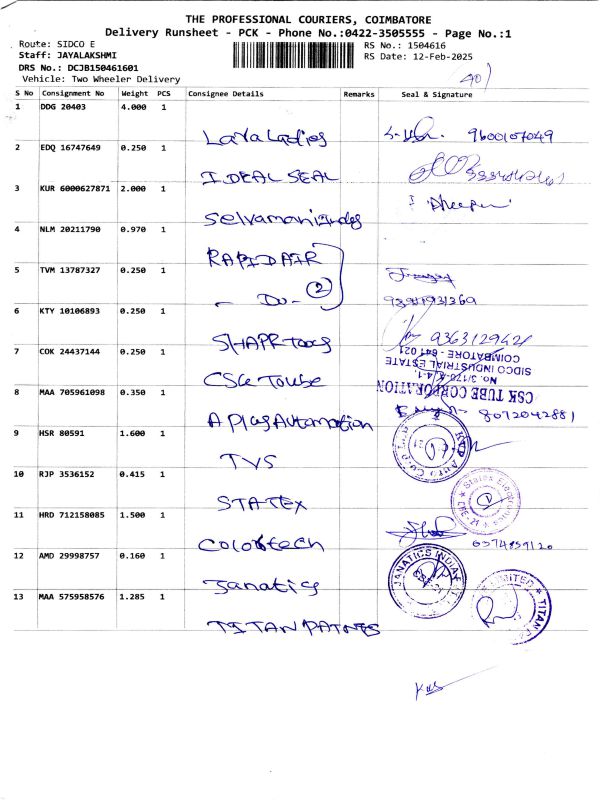 THE PROFESSIONAL COURIERS, COIMBATORE
Delivery Runsheet - PCK - Phone No.:0422-3505555 - Page No.:1
Route: SIDCO E
RS No.: 1504616
Staff: JAYALAKSHMI
RS Date: 12-Feb-2025
DRS No.: DCJB150461601
Vehicle: Two Wheeler Delivery
S No Consignment No Weight PCS Consignee Details Remarks Seal & Signature
1 DDG 20403 4.000 1
Laxa Ladies 9600107049
2 EDQ 16747649 0.250 1
IDEAL SEAL
3 KUR 6000627871 2.000 1
Selvamani Indus
4 NLM 20211790 0.970 1
RAPID AIR
5 TVM 13787327 0.250 1
- Do - 2
6 KTY 10106893 0.250 1
SHAPR Tools
7 COK 24437144 0.250 1
CSK Toube
CSK TUBE CORPORATION
No. 3/170-A-1, 4-1,
SIDCO INDUSTRIAL ESTATE
COIMBATORE - 641 021
8 MAA 705961098 0.350 1
A Plus Automation 8072042881
9 HSR 80591 1.600 1
TVS
10 RJP 3536152 0.415 1
STATEX
11 HRD 712158085 1.500 1
Colortech
12 AMD 29998757 0.160 1
Janatics
JANATICS INDIA
13 MAA 575958576 1.285 1
TITAN PAINTS
LIMITED TITAN